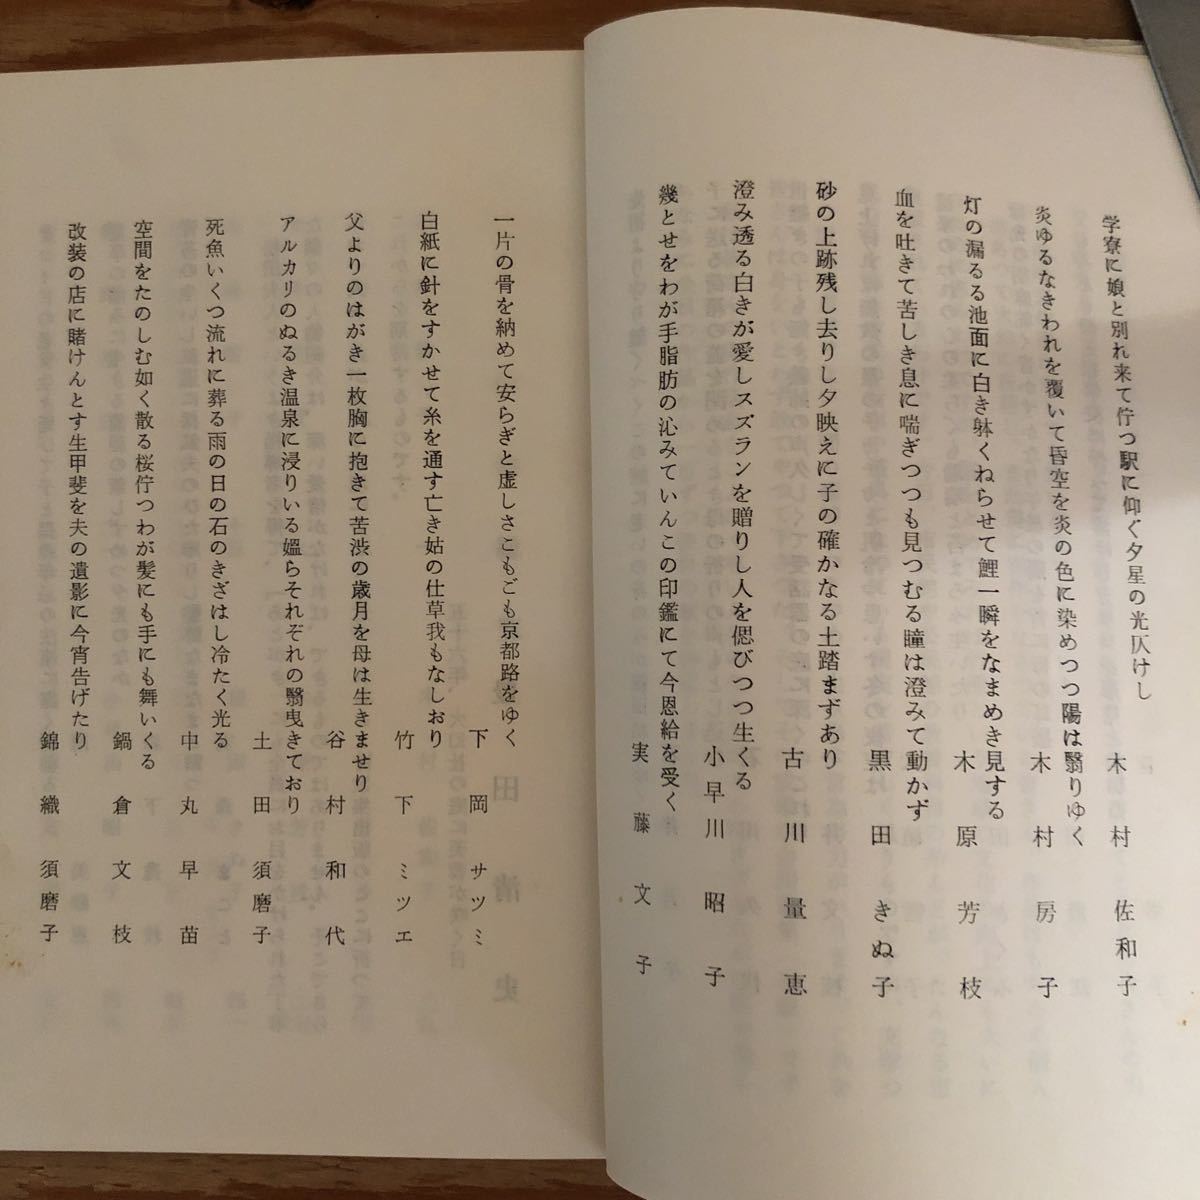 学寮に娘と別れ来て佇つ駅に仰ぐ夕星の光仄けし
木村佐和子
炎ゆるなきわれを覆いて昏空を炎の色に染めつつ陽は翳りゆく
木村房子
灯の漏るる池面に白き躰くねらせて鯉一瞬をなまめき見する
木原芳枝
血を吐きて苦しき息に喘ぎつつも見つむる瞳は澄みて動かず
黒田きぬ子
砂の上跡残し去りし夕映えに子の確かなる土踏まずあり
古川量恵
澄み透る白きが愛しスズランを贈りし人を偲びつつ生くる
小早川昭子
幾とせをわが手脂肪の沁みていんこの印鑑にて今恩給を受く
実藤文子
一片の骨を納めて安らぎと虚しさこもごも京都路をゆく
下岡サツミ
白紙に針をすかせて糸を通す亡き姑の仕草我もなしおり
竹下ミツエ
父よりのはがき一枚胸に抱きて苦渋の歳月を母は生きませり
谷村和代
アルカリのぬるき温泉に浸りいる媼らそれぞれの翳曳きており
土田須磨子
死魚いくつ流れに葬る雨の日の石のきざはし冷たく光る
中丸早苗
空間をたのしむ如く散る桜佇つわが髪にも手にも舞いくる
鍋倉文枝
改装の店に賭けんとす生甲斐を夫の遺影に今宵告げたり
錦織須磨子